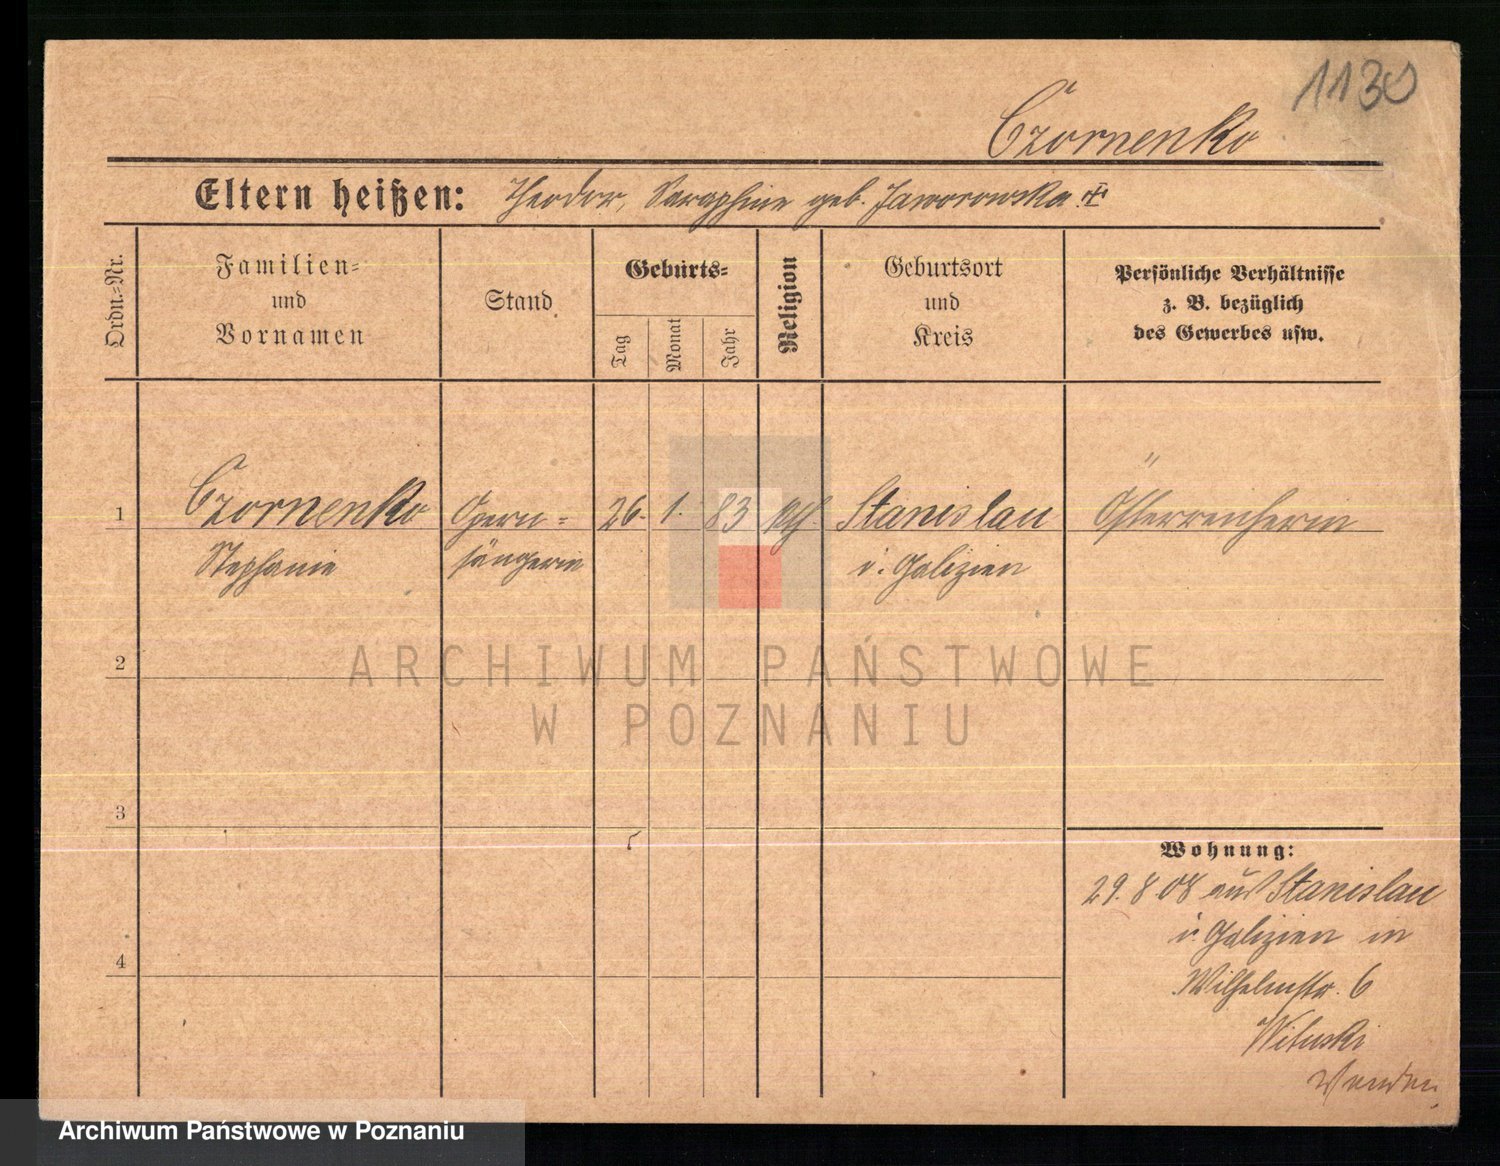 1130
Czornenko
Eltern heißen: Theodor, Seraphine geb. Jaworowska
Ordn.-Nr.
Familien-
und
Vornamen
Stand
Geburts-
Tag
Monat
Jahr
Religion
Geburtsort
und
Kreis
Persönliche Verhältnisse
z. B. bezüglich
des Gewerbes usw.
1 Czornenko Opern- 26. 1. 83 kth. Stanislau Österreicherin
Stephanie sängerin i. Galizien
2
ARCHIWUM PAŃSTWOWE
W POZNANIU
3
Wohnung:
29. 8. 08 aus Stanislau
i. Galizien in
4
Wilhelmstr. 6
Wituski
Archiwum Państwowe w Poznaniu